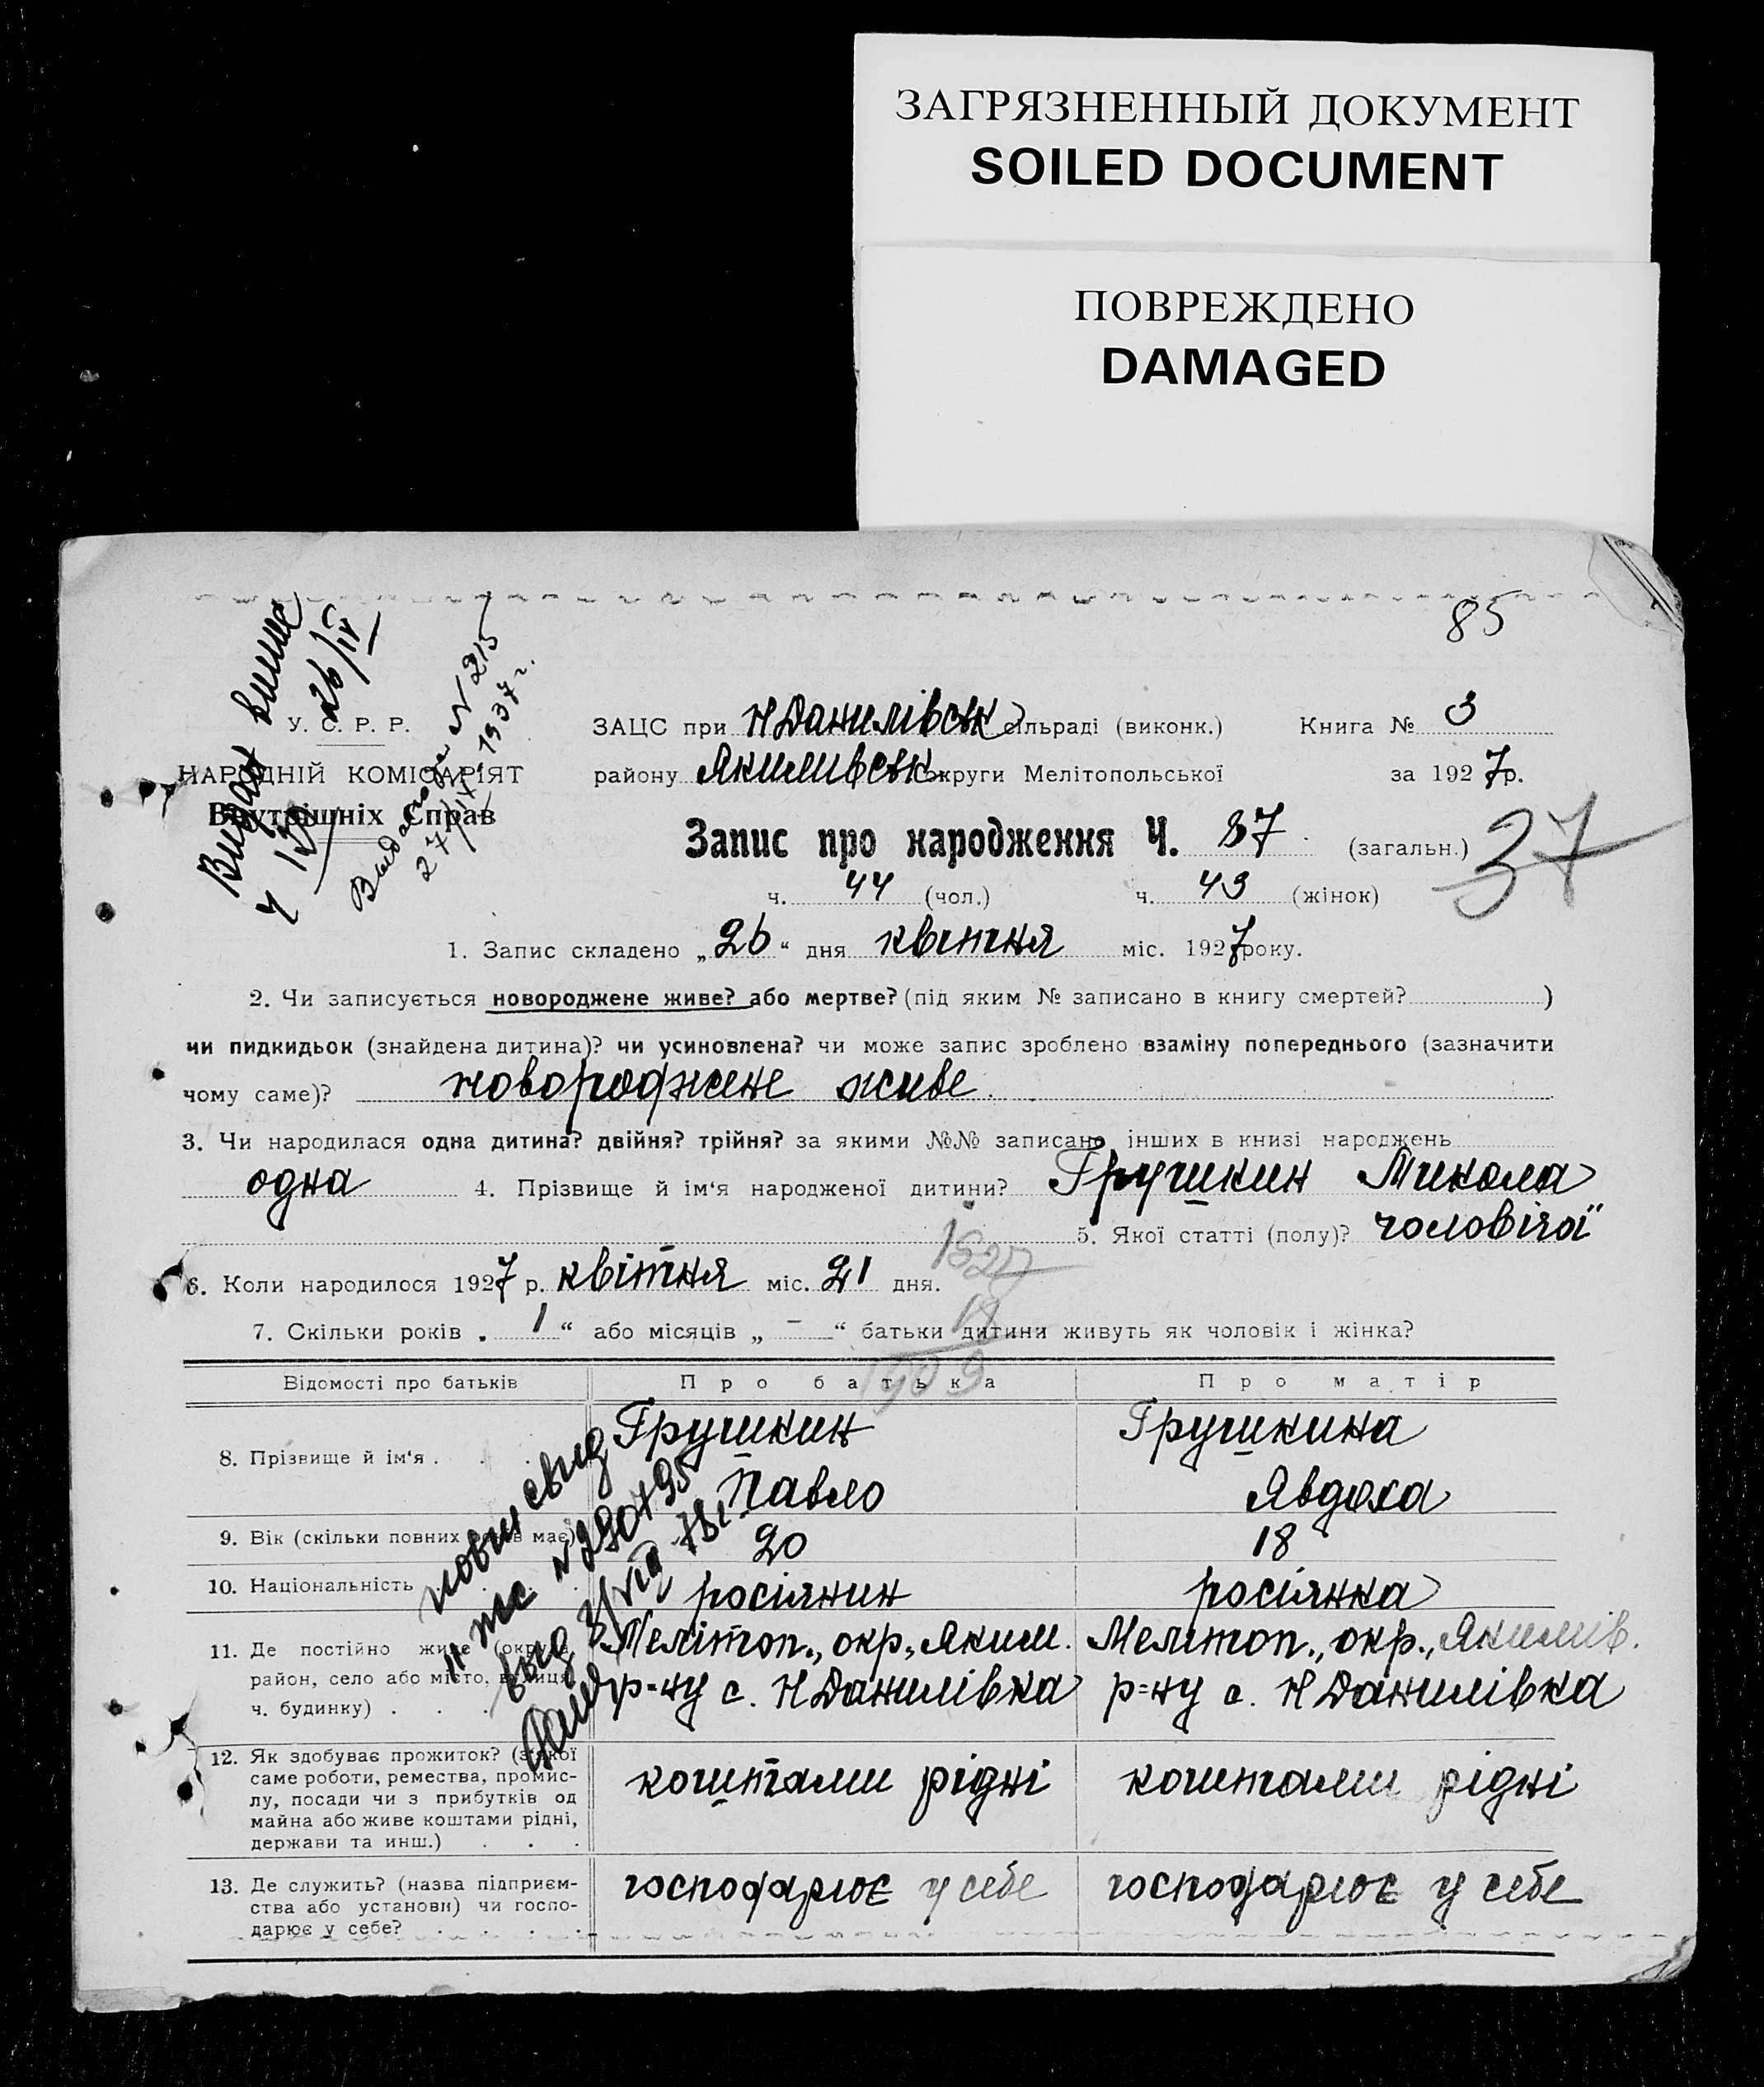 ЗАГРЯЗНЕННЫЙ ДОКУМЕНТ
SOILED DOCUMENT
ПОВРЕЖДЕНО
DAMAGED
85
Видан
26/IV
N 215
27/IX 1937 г.
У. С. Р. Р.
НАРОДНІЙ КОМІСАРІЯТ
Внутрішніх Справ
ЗАЦС при Н Данилівськ сільраді (виконк.) Книга № 3
району Якимівськ округи Мелітопольської за 1927 р.
Запис про народження Ч. 87 (загальн.) 37
ч. 44 (чол.) ч. 43 (жінок)
1. Запис складено „26“ дня квітня міс. 1927 року.
2. Чи записується новороджене живе? або мертве? (під яким № записано в книгу смертей? )
чи пидкидьок (знайдена дитина)? чи усиновлена? чи може запис зроблено взаміну попереднього (зазначити
чому саме)? новороджене живе
3. Чи народилася одна дитина? двійня? трійня? за якими №№ записано інших в книзі народжень
одна 4. Прізвище й ім‘я народженої дитини? Грушкин Микола
5. Якої статті (полу)? чоловічої
6. Коли народилося 1927 р. квітня міс. 21 дня. 1927
7. Скільки років „ 1 “ або місяців „ – “ батьки дитини живуть як чоловік і жінка?
18
1909
Відомості про батьків Про батька Про матір
8. Прізвище й ім‘я . Грушкин Грушкина
Павло Явдоха
9. Вік (скільки повних років має) 20 18
10. Національність росіянин росіянка
11. Де постійно живе (округа, Мелітоп., окр., Яким. Мелітоп., окр., Якимів.
район, село або місто, вулиця, р-ну с. Н Данилівка р-ну с. Н Данилівка
ч. будинку) . . .
12. Як здобуває прожиток? (з якої
саме роботи, ремества, промис- коштами рідні коштами рідні
лу, посади чи з прибутків од
майна або живе коштами рідні,
держави та инш.) . . .
13. Де служить? (назва підприєм- господарює у себе господарює у себе
ства або установи) чи госпо-
дарює у себе? . . . .